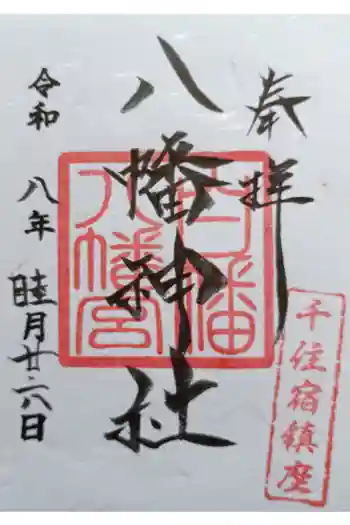 奉拝
八幡神社
令和
八年
睦月廿六日
千住宿鎮座
八幡宮